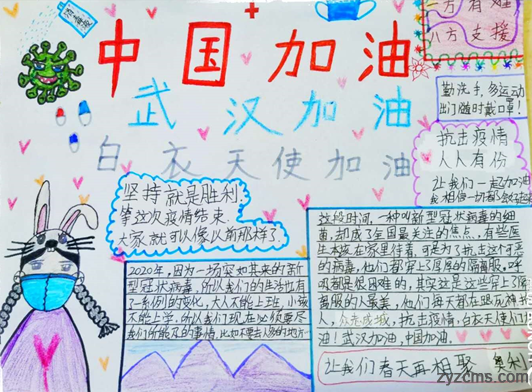 消毒液
中国加油
武汉加油
白衣天使加油
一方有难
八方支援
勤洗手，多运动
出门随时戴口罩！
抗击疫情
人人有份
让我们一起加油
我相信一切都
坚持就是胜利
等这次疫情结束
大家就可以像以前那样了
2020年，因为一场突如其来的新
型冠状病毒，所以我们的生活也有
了一系列的变化，大人不能上班，小孩
不能上学，所以我们现在必须要尽
我们所能及的事情，比如不要去人多的地方
这段时间，一种叫新型冠状病毒的细
菌，却成了全国最关注的焦点，有些医
生本该在家里待着，可是为了抗击这个可恶
的病毒，他们都穿上了厚厚的隔离服，呼
吸都是很困难的，其实这是这些穿上了隔
离服的人最美，他们每天都在跟死神
人，众志成城，抗击疫情，白衣天使们加
油！武汉加油，中国加油。
让我们春天再相聚
奥利
zyzcms.com